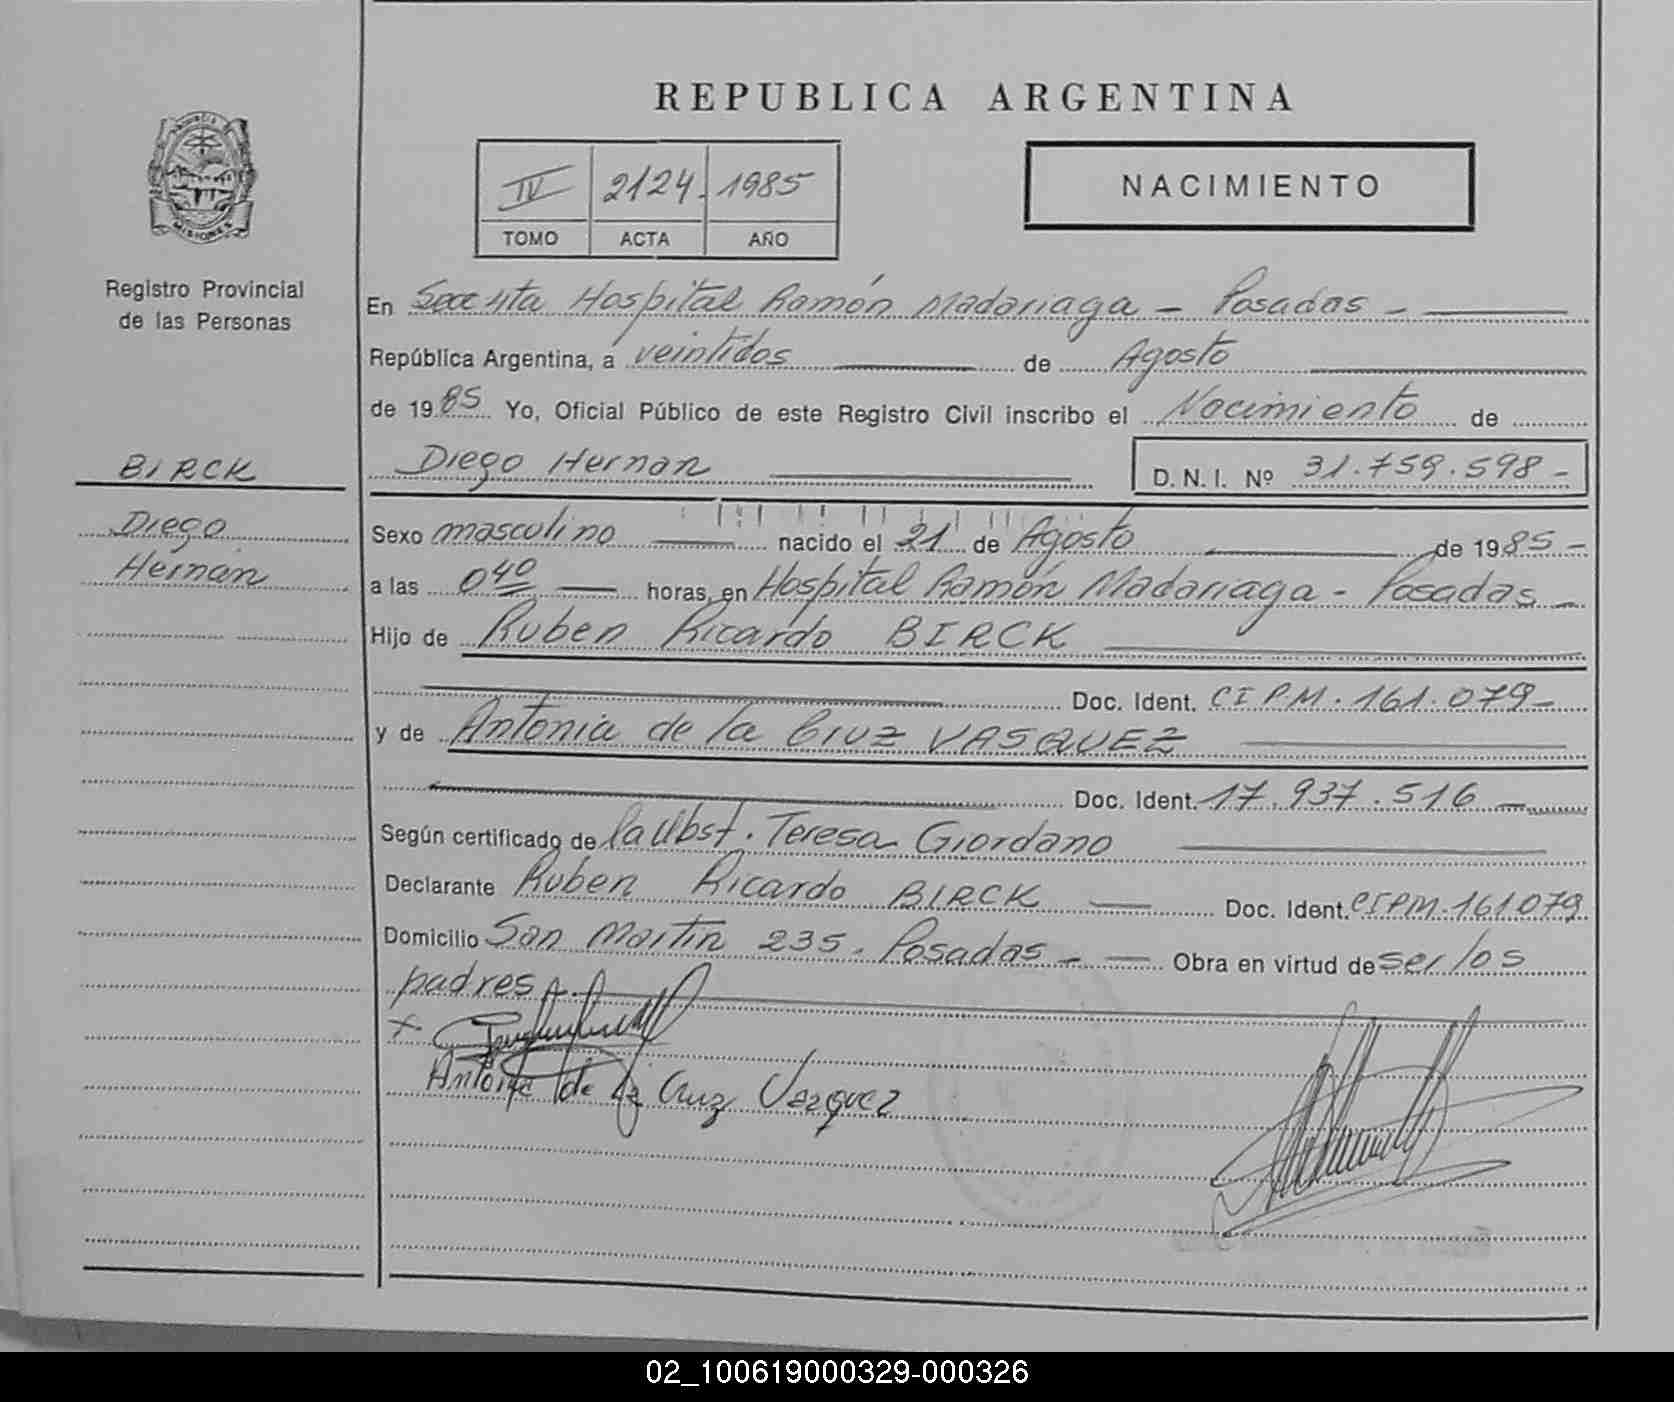 REPUBLICA ARGENTINA
IV 2124. 1985
TOMO ACTA AÑO
NACIMIENTO
MISIONES
Registro Provincial
de las Personas
BIRCK
Diego
Hernán
En Secc 4ta Hospital Ramón Madariaga - Posadas -
República Argentina, a veintidos de Agosto
de 1985 Yo, Oficial Público de este Registro Civil inscribo el Nacimiento de
Diego Hernan D.N.I. Nº 31.759.598-
Sexo masculino nacido el 21 de Agosto de 1985-
a las 0 40 horas, en Hospital Ramón Madariaga - Posadas -
Hijo de Ruben Ricardo BIRCK
Doc. Ident. CIPM. 161.079-
y de Antonia de la Cruz VASQUEZ
Doc. Ident. 17.937.516 -
Según certificado de la Obst. Teresa Giordano
Declarante Ruben Ricardo BIRCK Doc. Ident. CIPM. 161079
Domicilio San Martin 235. Posadas - Obra en virtud de ser los
padres
Antonia de la Cruz Vazquez
02_100619000329-000326